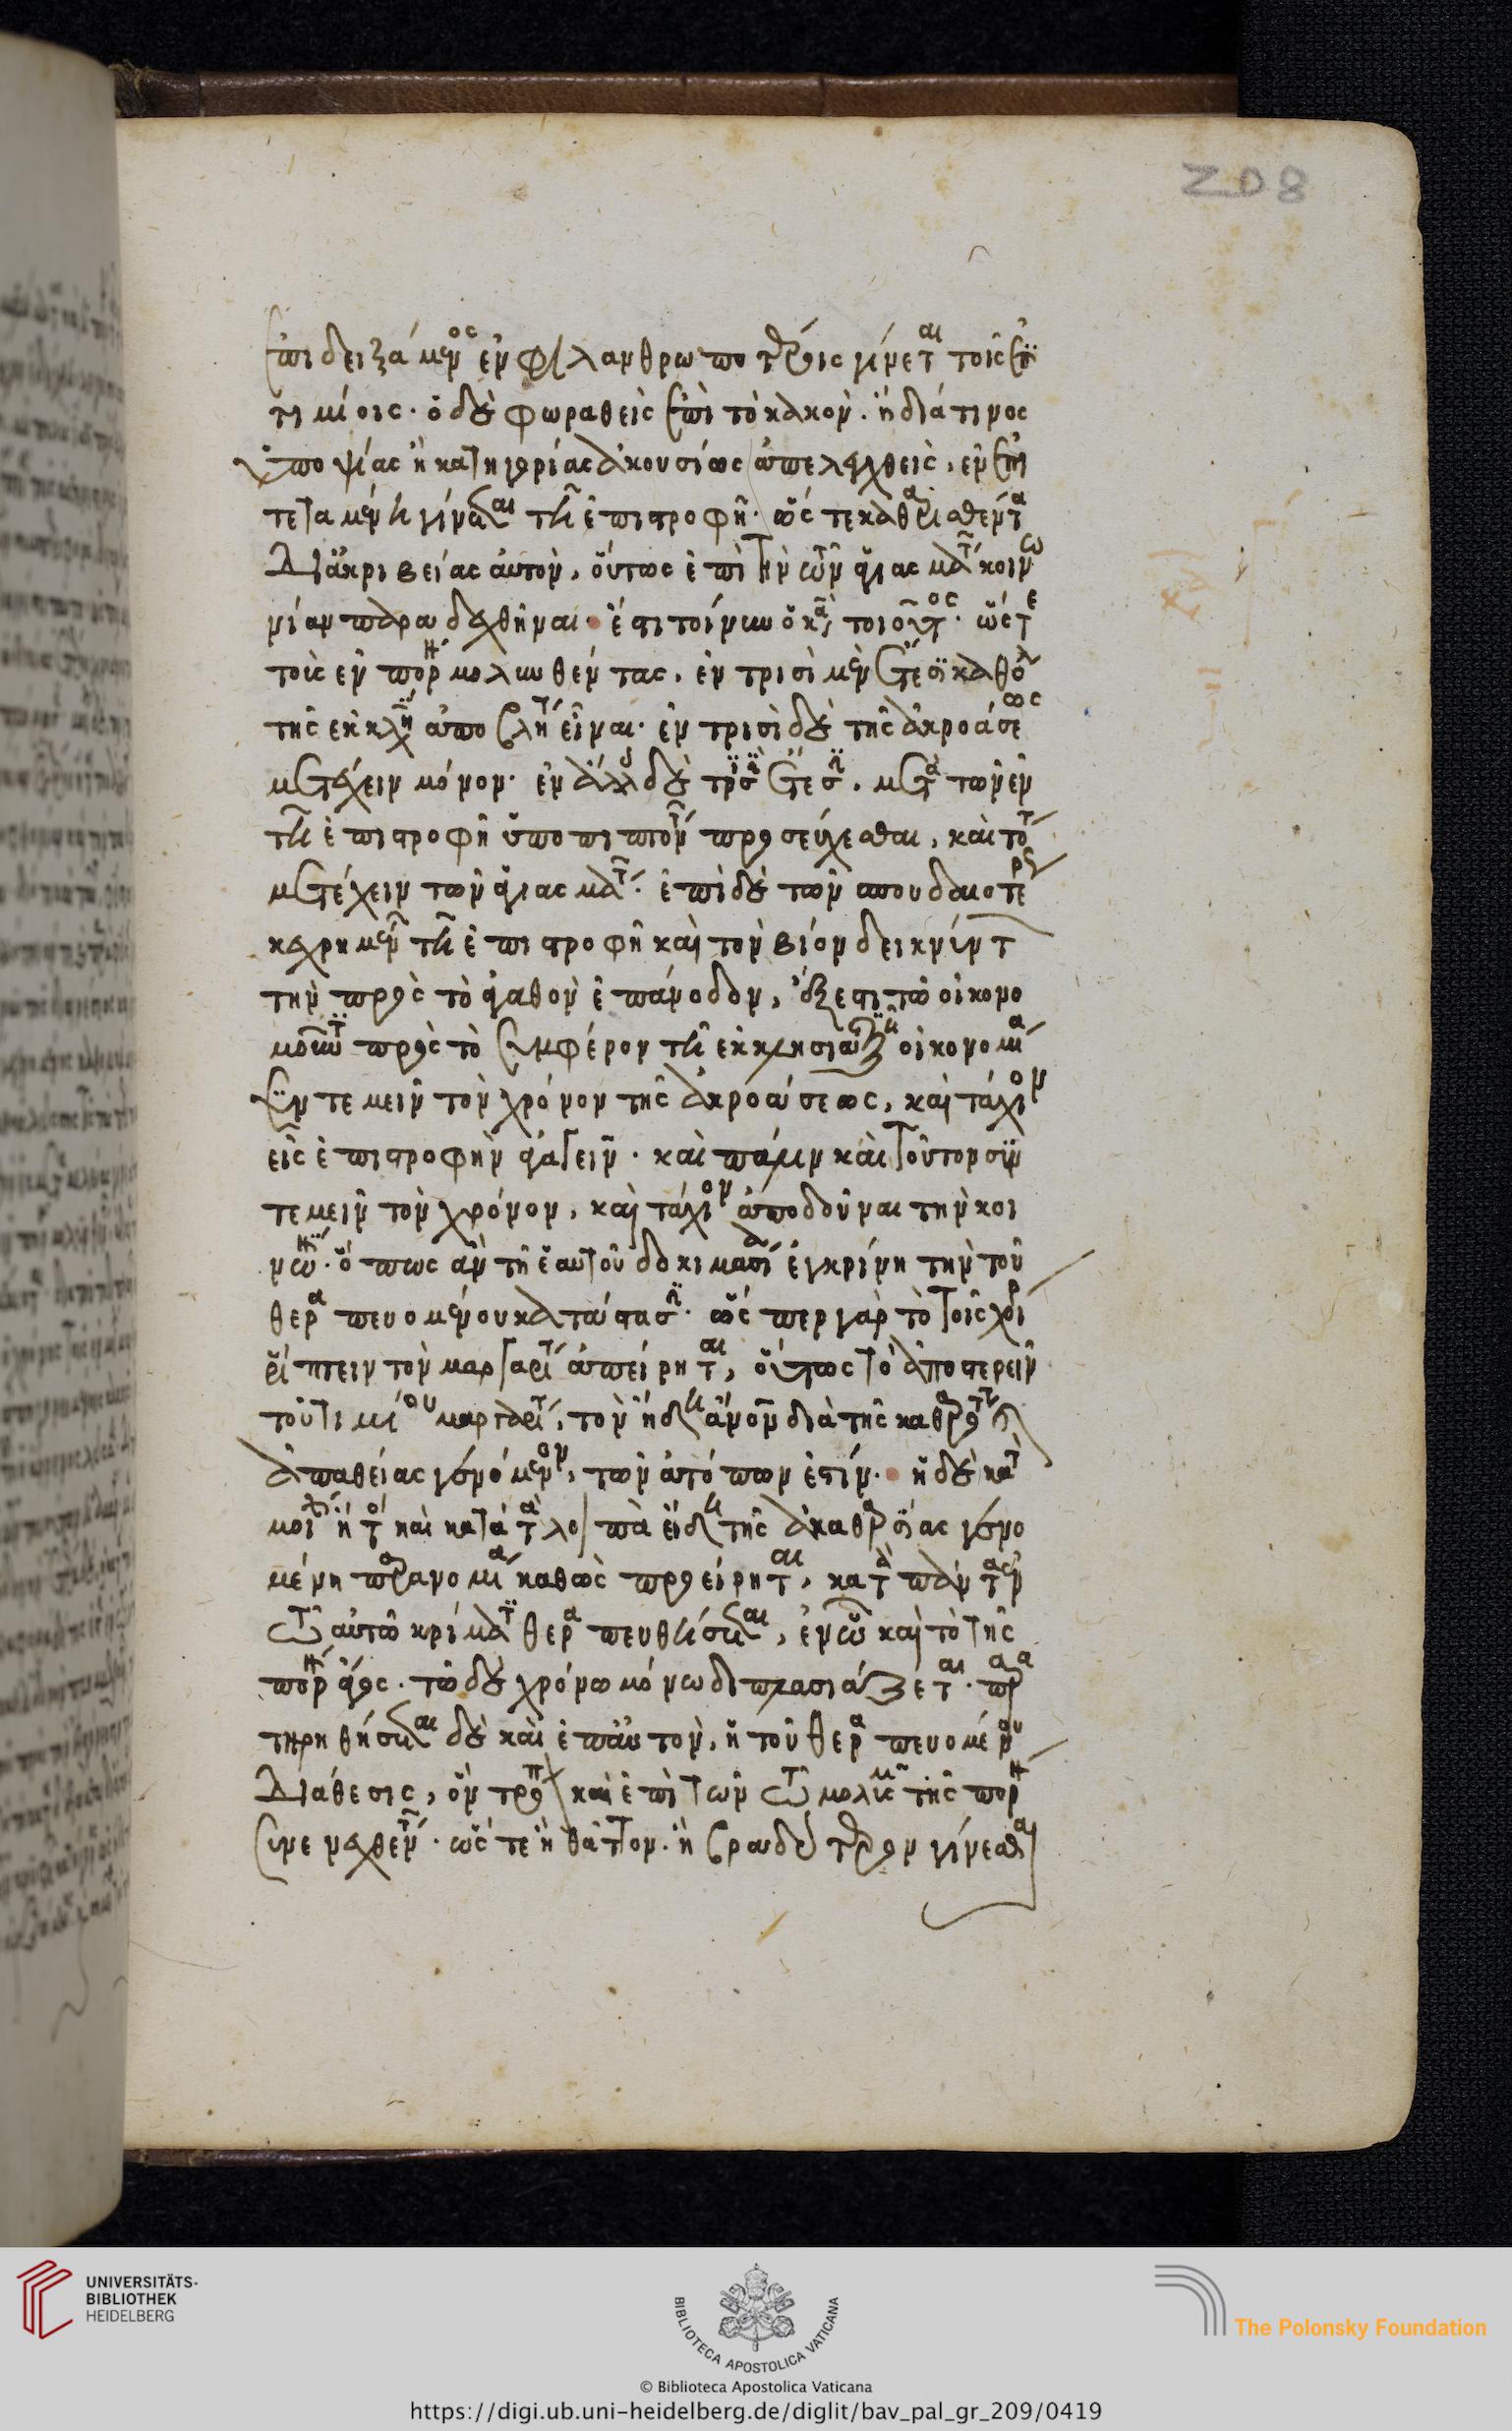 ἐπιδειξάμενος ἐν φιλανθρωποτέροις γίνεται τοῖς ἐπι
τιμίοις· ὁ δὲ φωραθεὶς ἐπὶ τὸ κακὸν. ἢ διά τινος
ὑποψίας ἢ κατηγορίας ἀκουσίως ἀπελεγχθεὶς, ἐν ἐπι
τεταμένη γίνεται τῆ ἐπιστροφῆ· ὥστε καθαρισθέντα
διἀκριβείας αὐτὸν, οὕτως ἐπὶ τὴν τῶν ἁγιασμάτων κοινω
νίαν παραδεχθῆναι· ἔστι τοίνυν ὁ κανὼν τοιοῦτος. ὥστε
τοὺς ἐν πορνεία μολυνθέντας, ἐν τρισὶ μὲν ἔτεσι καθόλου
τῆς εὐχῆς ἀποβλήτους εἶναι· ἐν τρισὶ δὲ τῆς ἀκροάσεως
μετέχειν μόνον· ἐν ἄλλοις δὲ τρισὶν ἔτεσιν, μετὰ τῶν ἐν
τῆ ἐπιστροφῆ ὑποπιπτόντων προσεύχεσθαι, καὶ τότε
μετέχειν τῶν ἁγιασμάτων· ἐπὶ δὲ τῶν σπουδαιοτέρως
κεχρημένων τῆ ἐπιστροφῆ καὶ τὸν βίον δεικνύντων
τὴν πρὸς τὸ ἀγαθὸν ἐπάνοδον, ἔξεστι τῶ οἰκονο
μοῦντι πρὸς τὸ συμφέρον τῆ ἐκκλησιαστικῆ οἰκονομία
συντεμεῖν τὸν χρόνον τῆς ἀκροάσεως, καὶ τάχιον
εἰς ἐπιστροφὴν ἀγαγεῖν· καὶ πάλιν καὶ τοῦτον συν
τεμεῖν τὸν χρόνον, καὶ τάχιον ἀποδοῦναι τὴν κοι
νωνίαν· ὅπως ἂν τῆ ἑαυτοῦ δοκιμασία ἐγκρίνη τὴν τοῦ
θεραπευομένου κατάστασιν· ὥσπερ γὰρ τὸ τοῖς χοίροις
ῥίπτειν τὸν μαργαρίτην ἀπείρηται, οὕτως τὸ ἀποστερεῖν
τοῦ τιμίου μαργαρίτου, τὸν ἤδη ἄνθρωπον διὰ τῆς καθαρότητος
ἀπαθείας γενόμενον, τῶν ἀτόπων ἐστίν· ἡ δὲ κατὰ
μοιχείαν ἤτοι καὶ κατὰ τὰ λοιπὰ εἴδη τῆς ἀκαθαρσίας γενο
μένη παρανομία καθὼς προείρηται, κατὰ πάντα ἐν
τῶ αὐτῶ κρίματι θεραπευθήσεται, ἐν ὧ καὶ τὸ τῆς
πορνείας ἄγος· τῶ δὲ χρόνω μόνω διπλασιάζεται· παρα
τηρηθήσεται δὲ καὶ ἐπαὐτὸν, ἡ τοῦ θεραπευομένου
διάθεσις, ὃν τρόπον καὶ ἐπὶ τῶν τῶ μολυσμῶ τῆς πορνείας
συνενεχθέντων· ὥστε ἢ θᾶττον. ἢ βραδύτερον γίνεσθαι